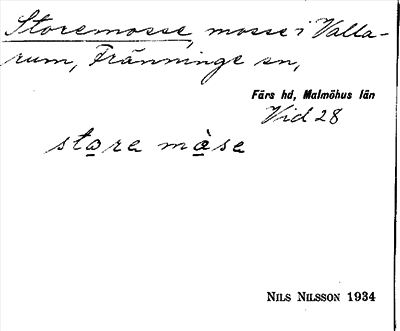 Storemosse, mosse i Valla-
rum, Fränninge sn,
Färs hd, Malmöhus län
Vid 28
stǫra mą̀sa
NILS NILSSON 1934